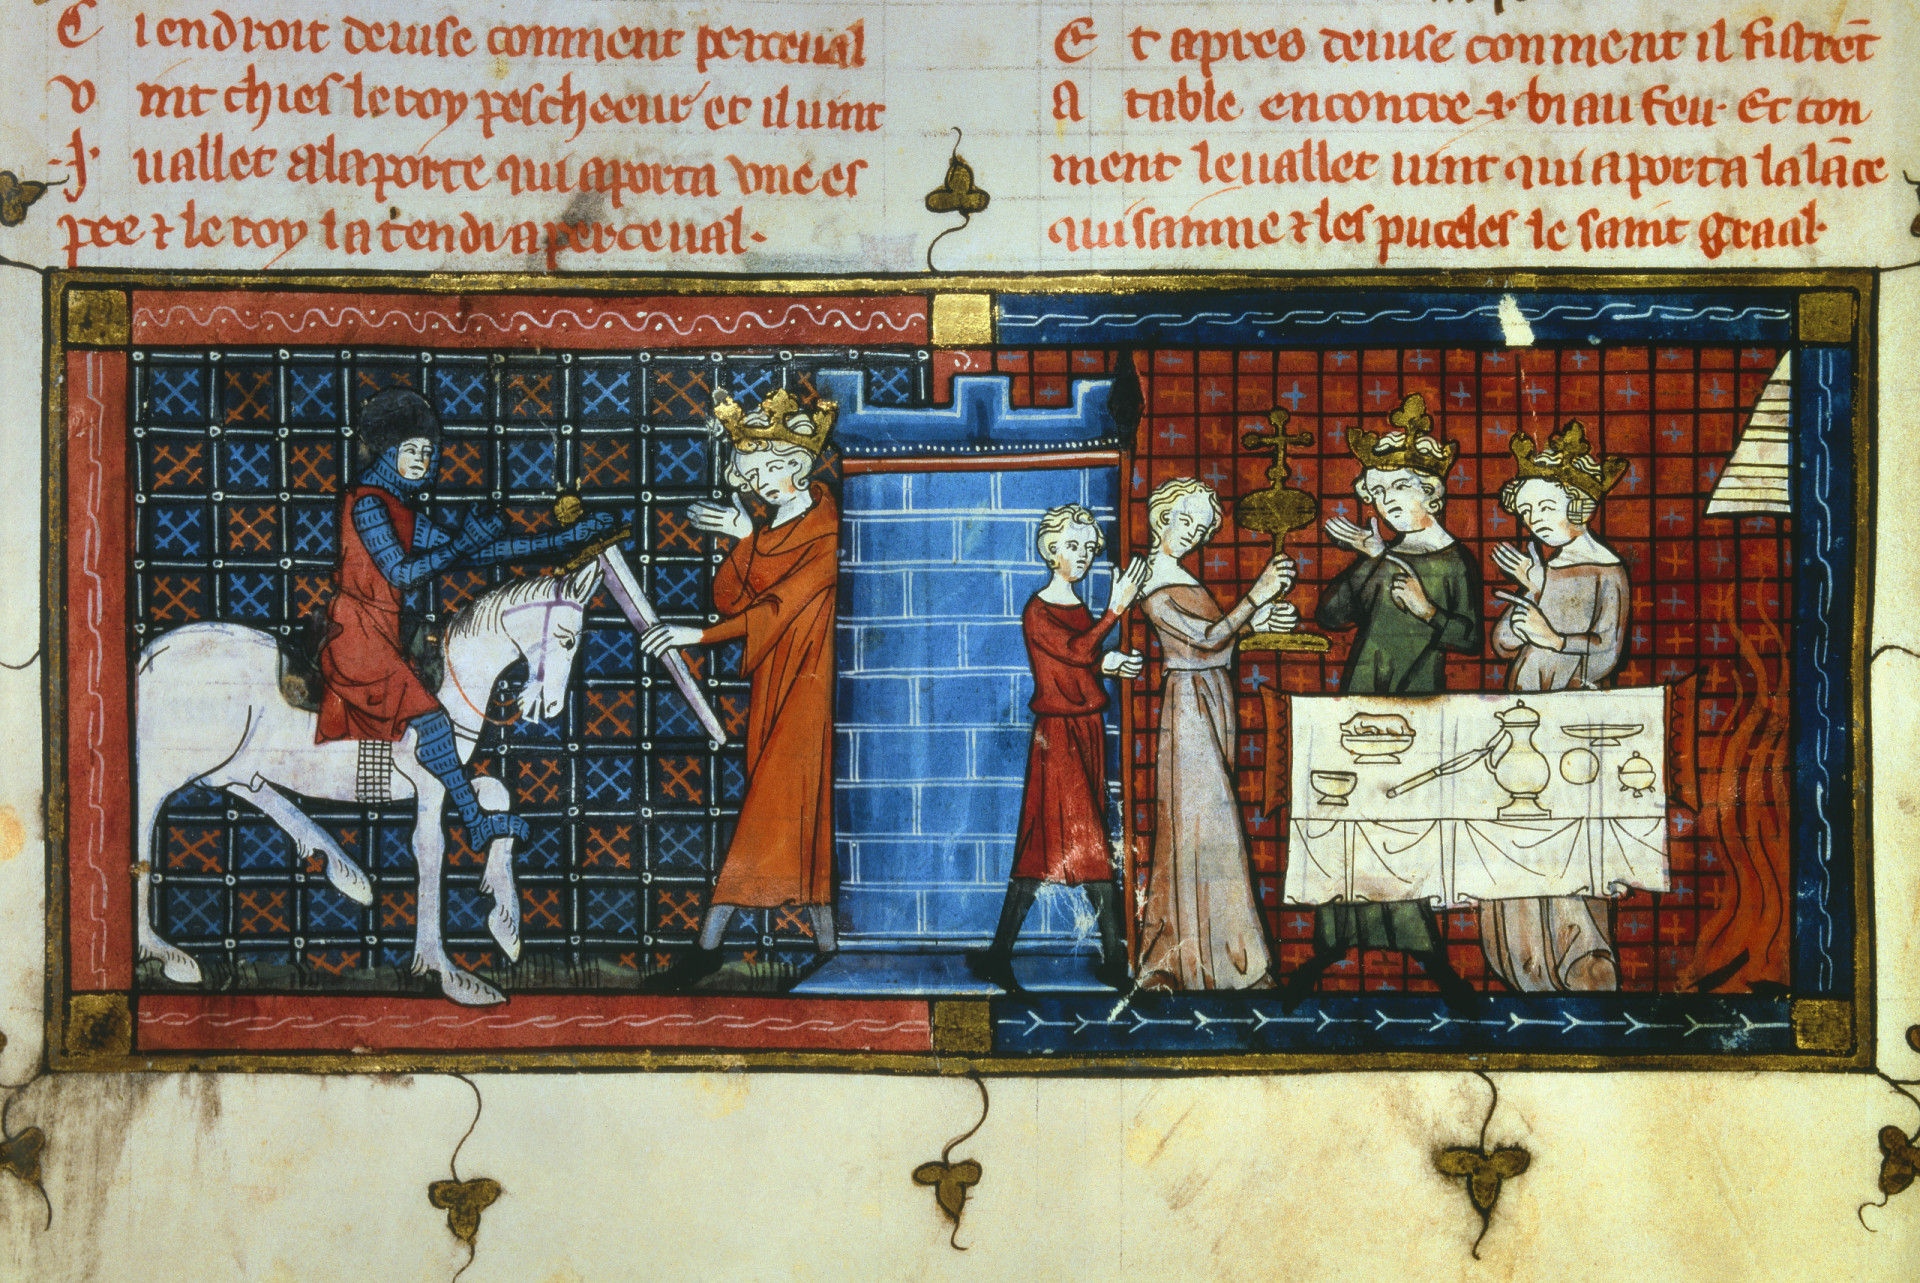 C iendroit deuise comment perceual
v int chies le roy pescheeur et il uint
·I· uallet a la porte qui aporta vne es
pee ⁊ le roy la tendi a perceual·
E t apres deuise comment il fist tēt
a table encontre ·i· biau feu· Et con
ment le uallet uint qui aporta la lāce
qui sainne ⁊ les puceles le saint graal·